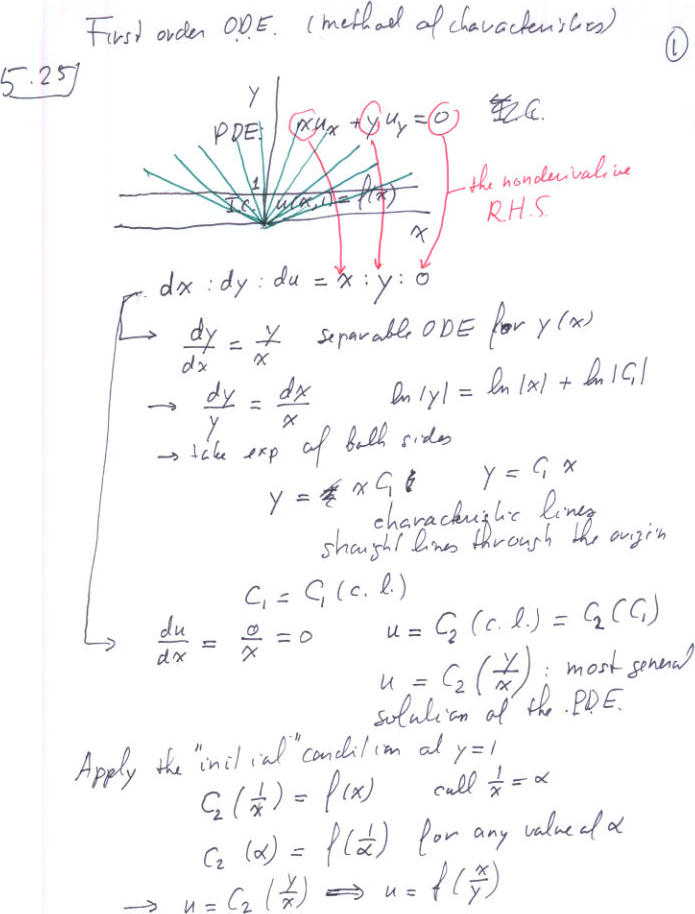 First order O.D.E. (method of characteristics)
①
5.25
y
PDE: xu_x + yu_y = 0
1
I.C. u(x,1) = f(x)
the nonderivative
R.H.S.
x
dx : dy : du = x : y : 0
→ dy/dx = y/x separable ODE for y(x)
→ dy/y = dx/x ln|y| = ln|x| + ln|C₁|
→ take exp of both sides
y = x C₁ y = C₁ x
characteristic lines
straight lines through the origin
C₁ = C₁(c.l.)
→ du/dx = 0/x = 0 u = C₂(c.l.) = C₂(C₁)
u = C₂(y/x) : most general
solution of the P.D.E.
Apply the "initial" condition at y=1
C₂(1/x) = f(x) call 1/x = α
C₂(α) = f(1/α) for any value of α
→ u = C₂(y/x) ⟹ u = f(x/y)